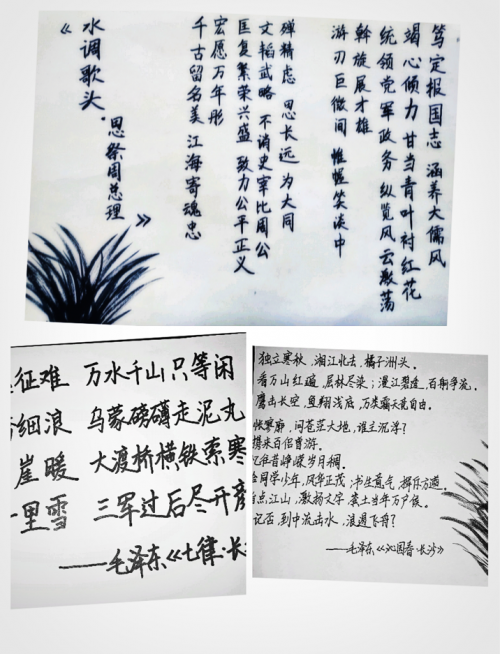 笃定报国志 涵养大儒风
竭心倾力 甘当青叶衬红花
统领党军政务 纵览风云激荡
斡旋展才雄
游刃巨微间 帷幄笑谈中
殚精虑 思长远 为大同
文韬武略 不消史宰比周公
匡复繁荣兴盛 致力公平正义
宏愿万年彤
千古留名美 江海寄魂忠
《水调歌头·思祭周总理》
征难 万水千山只等闲
细浪 乌蒙磅礴走泥丸
崖暖 大渡桥横铁索寒
里雪 三军过后尽开颜
——毛泽东《七律·长
独立寒秋，湘江北去，橘子洲头。
看万山红遍，层林尽染；漫江碧透，百舸争流。
鹰击长空，鱼翔浅底，万类霜天竞自由。
怅寥廓，问苍茫大地，谁主沉浮？
携来百侣曾游。
忆往昔峥嵘岁月稠。
同学少年，风华正茂；书生意气，挥斥方遒。
点江山，激扬文字，粪土当年万户侯。
记否，到中流击水，浪遏飞舟？
——毛泽东《沁园春·长沙》